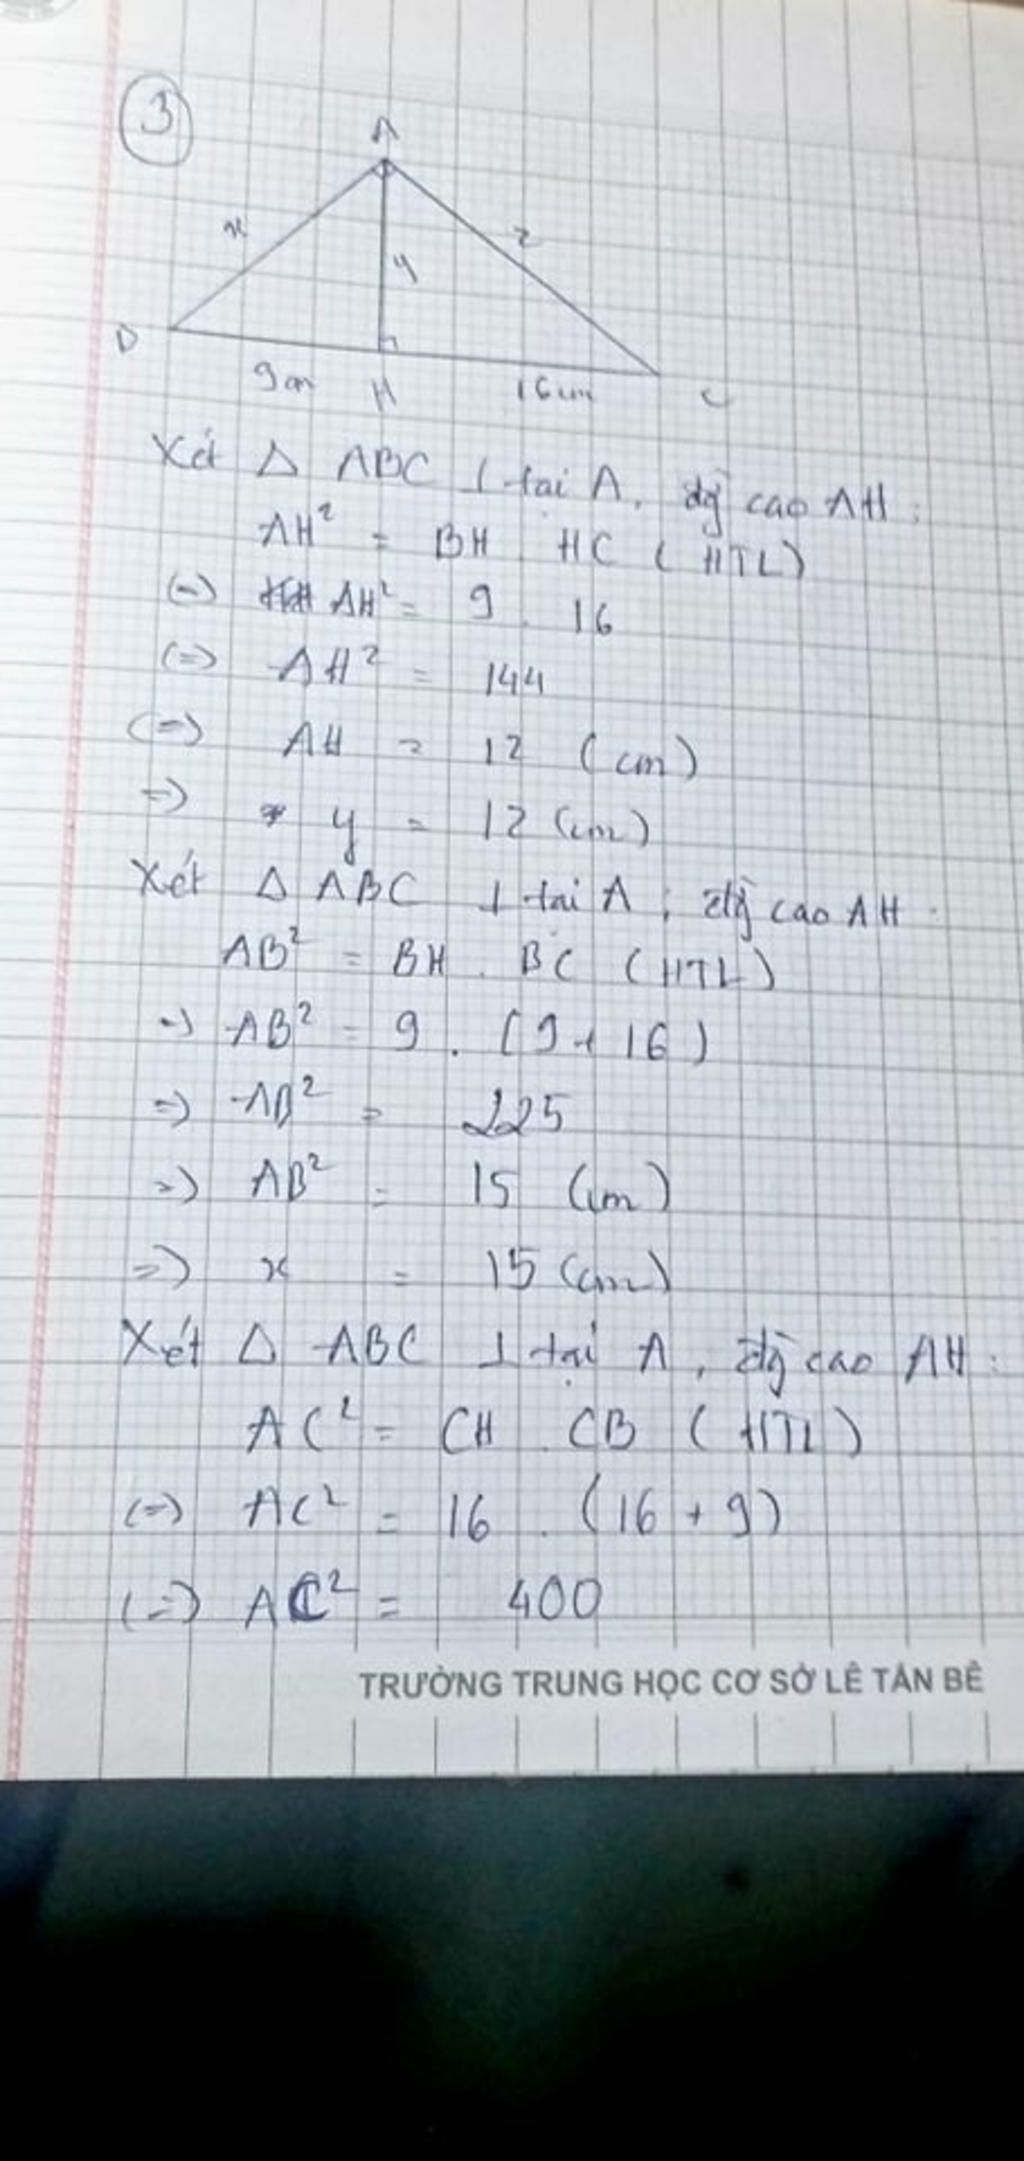 3
A
x
z
y
B
9cm
H
16cm
C
Xét Δ ABC ⊥ tại A, đg cao AH:
AH² = BH . HC (HTL)
(=) AH² = 9 . 16
(=) AH² = 144
(=) AH = 12 (cm)
=) y = 12 (cm)
Xét Δ ABC ⊥ tại A; đg cao AH
AB² = BH . BC (HTL)
=) AB² = 9 . (9 + 16)
=) AB² = 225
=) AB² = 15 (cm)
=) x = 15 (cm)
Xét Δ ABC ⊥ tại A, đg cao AH:
AC² = CH . CB (HTL)
(=) AC² = 16 . (16 + 9)
(=) AC² = 400
TRƯỜNG TRUNG HỌC CƠ SỞ LÊ TẤN BÊ